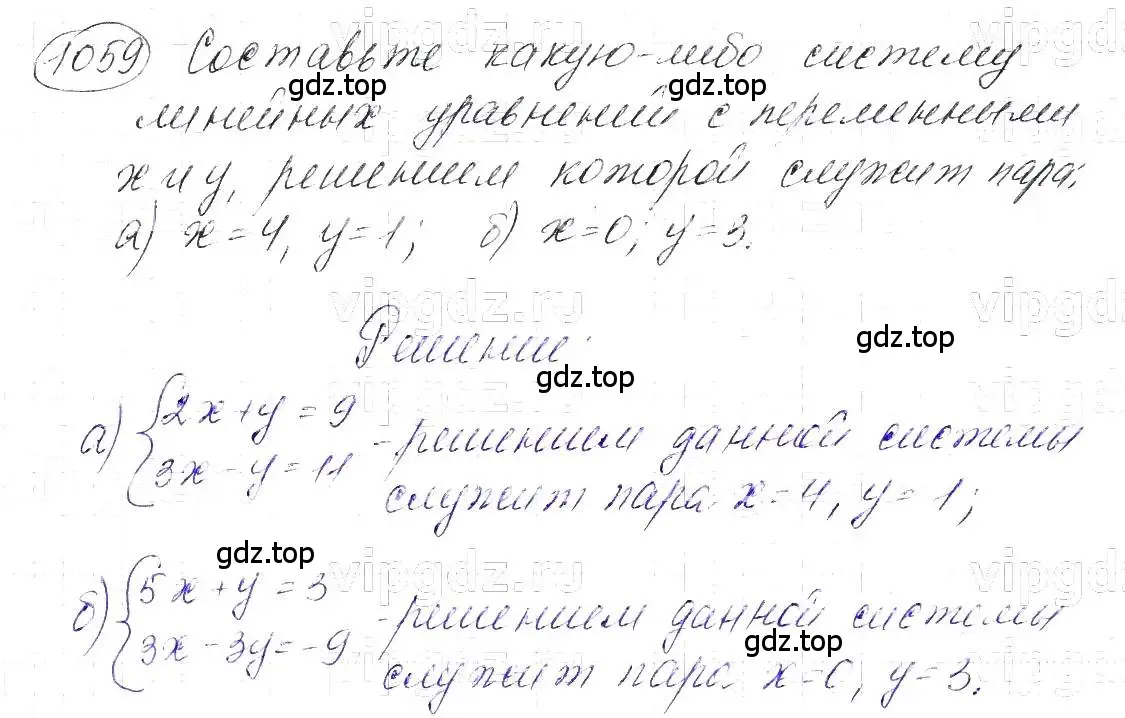 1059 Составьте какую-либо систему
линейных уравнений с переменными
x и y, решением которой служит пара:
а) x=4, y=1; б) x=0; y=3.
Решение:
а) {2x+y=9
3x-y=11 - решением данной системы
служит пара x=4, y=1;
б) {5x+y=3
3x-3y=-9 - решением данной системы
служит пара x=0, y=3.
gdz.top
gdz.top
gdz.top
gdz.top
gdz.top
gdz.top
vipgdz.ru
vipgdz.ru
vipgdz.ru
vipgdz.ru